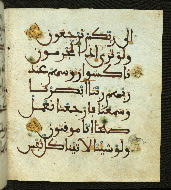 الى ربكم ترجعون
ولو ترى اذ المجرمون
ناكسوا روسهم عند
ربهم ربنا ابصرنا
وسمعنا فارجعنا نعمل
صلحا انا موقنون
ولو شينا لاتينا كل نفس